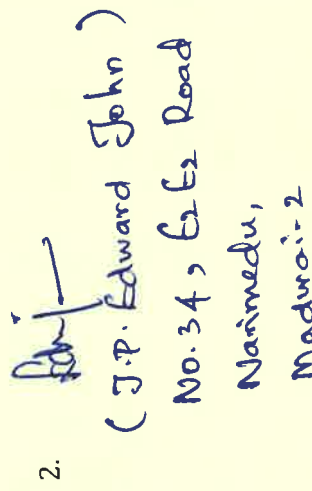 2.
(J.P. Edward John)
No.34, E2 E2 Road
Narimedu,
Madurai-2